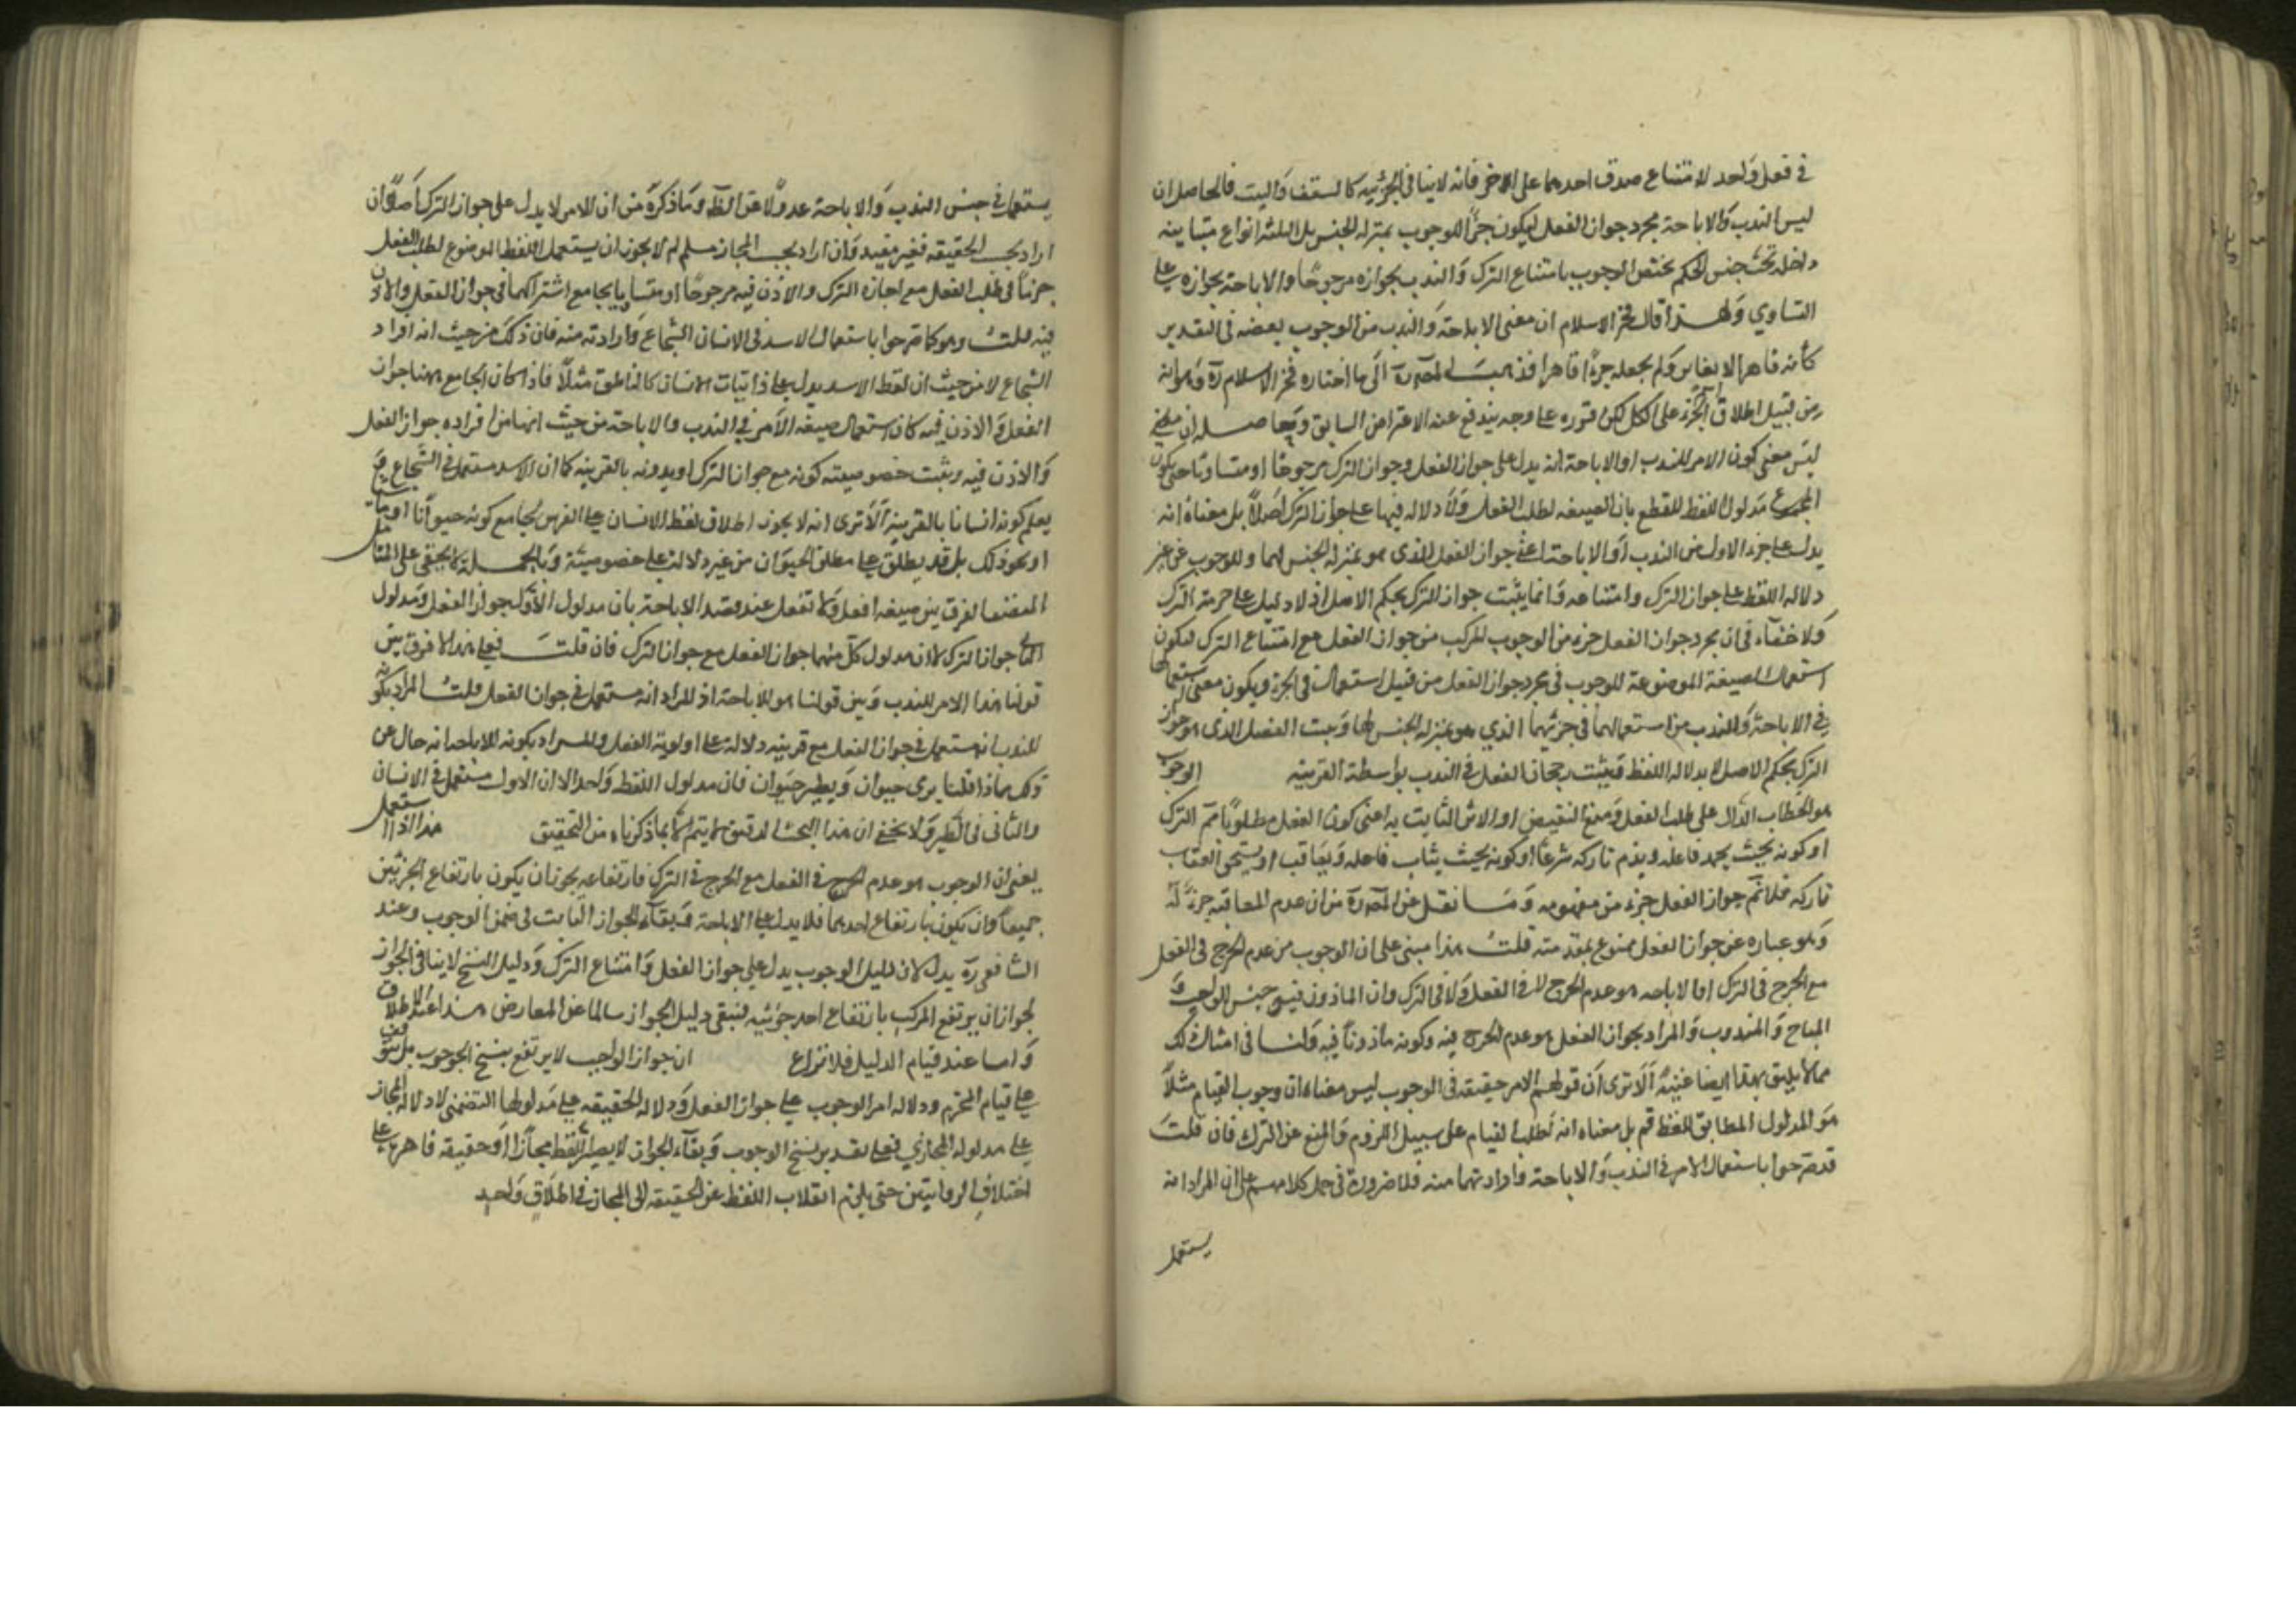 في فعل واحد لامتناع صدق احدهما على الاخر فانه لاينافي الجزئيه كالسقف والبيت فالحاصل ان
ليس الندب والاباحة مجرد جواز الفعل ليكون جزأ للوجوب بمنزله الجنس بل الثلثه انواع متباينه
داخله تحت جنس الحكم يختص الوجوب بامتناع الترك والندب بجوازه مرجوحا والاباحة بجوازه على
التساوي ولهذا قال فخر الاسلام ان معنى الاباحة والندب من الوجوب بعضه في التقدير
كأنه قاصر لا مغاير ولم يجعله جزءا قاصرا فذهب المص ره الى ما اختاره فخر الاسلام ره وهو انه
من قبيل اطلاق الجزء على الكل لكن قرره على وجه يندفع عنه الاعتراض السابق وحاصله ان
ليس معنى كون الامر للندب او الاباحة انه يدل على جواز الفعل وجواز الترك مرجوحا او متساويا حتى يكون
المجموع مدلول اللفظ للقطع بان الصيغه لطلب الفعل ولا دلاله فيها على جواز الترك اصلا بل معناه انه
يدل على جزء الاول من الندب او الاباحة اعني جواز الفعل الذي هو بمنزله الجنس لهما وللوجوب من غير
دلاله اللفظ على جواز الترك وامتناعه وانما يثبت جواز الترك بحكم الاصل اذ لا دليل على حرمة الترك
ولا خفاء في ان مجرد جواز الفعل جزء من الوجوب المركب من جواز الفعل مع امتناع الترك فيكون
استعمال الصيغة الموضوعة للوجوب في مجرد جواز الفعل من قبيل استعمال في الجزء ويكون معنى استعمالها
في الاباحة والندب من استعمالهما في جزئيهما الذي هو بمنزله الجنس لها ويثبت الفصل الذي هو جواز
الترك بحكم الاصل لا بدلاله اللفظ ويثبت رجحان الفعل في الندب بواسطة القرينه الوجوب
هو الخطاب الدال على طلب الفعل ومنع النقيض او الاثر الثابت به اعني كون الفعل مطلوبا مع الترك
او كونه بحيث يحمد فاعله ويذم تاركه شرعا او كونه بحيث يثاب فاعله ويعاقب او يستحق العقاب
تاركه فلا نم جواز الفعل جزء من مفهومه وما نقل عن المص ره من ان عدم المعاقبه جزء له
وهو عباره عن جواز الفعل ممنوع بمقدمته قلت هذا مبنى على ان الوجوب من عدم الحرج في الفعل
مع الحرج في الترك او الاباحه هو عدم الحرج لا في الفعل ولا في الترك وان الماذون فيه جنس للواجب و
المباح والمندوب والمراد بجواز الفعل هو عدم الحرج فيه وكونه مأذونا فيه ولنا في امثال ذلك
مما لا يليق بهذا ايضا غنية الا ترى ان قولهم الامر حقيقه في الوجوب ليس معناه ان وجوب القيام مثلا
هو المدلول المطابق للفظ قم بل معناه انه لطلب القيام على سبيل اللزوم والمنع عن الترك فان قلت
قد صرحوا باستعمال الامر في الندب والاباحة وارادتهما منه فلا ضرورة في حمل كلامهم على ان المراد انه
يستعمل
يستعمل في جنس الندب والاباحة عدولا عن الظ وما ذكره من ان الامر لا يدل على جواز الترك اصلا وان
اراد بحسب الحقيقه فغير مفيد وان اراد بحسب المجاز مسلم لم لا يجوز ان يستعمل اللفظ الموضوع لطلب الفعل
جزما في طلب الفعل مع اجازه الترك والاذن فيه مرجوحا او متساويا بجامع اشتراكهما في جواز الفعل والاذن
فيه قلت وهو كما صرحوا باستعمال الاسد في الانسان الشجاع وارادته منه فان ذلك من حيث انه افراد
الشجاع لا من حيث ان لفظ الاسد يدل على ذاتيات الانسان كالناطق مثلا فاذا كان الجامع ههنا جواز
الفعل والاذن فيه كان استعمال صيغه الامر في الندب والاباحة من حيث انهما من افراده جواز الفعل
والاذن فيه ويثبت خصوصيته كونه مع جواز الترك او بدونه بالقرينه كما ان الاسد مستعمل في الشجاع و
يعلم كونه انسانا بالقرينه الا ترى انه لا يجوز اطلاق لفظ الانسان على الفرس بجامع كونه حيوانا او ماشيا
او نحو ذلك بل قد يطلق على مطلق الحيوان من غير دلالة على خصوصيته وبالجملة لا يخفى على المتأمل
المنصف الفرق بين صيغه افعل ولا تفعل عند قصد الاباحة بان مدلول الاول جواز الفعل ومدلول
الثاني جواز الترك لا ان مدلول كل منهما جواز الفعل مع جواز الترك فان قلت فعلى هذا لا فرق بين
قولنا هذا الامر للندب وبين قولنا هو للاباحة اذ المراد انه مستعمل في جواز الفعل قلت المراد بكونه
للندب انه مستعمل في جواز الفعل مع قرينه دلالة على اولوية الفعل والمراد بكونه للاباحة انه خال عن
ذلك كما اذا قلنا يرمى حيوان ويطير حيوان فان مدلول اللفظ واحد الا ان الاول مستعمل في الانسان
والثاني في الطير ولا يخفى ان هذا البحث الدقيق لا يتم الا بما ذكرناه من التحقيق هذا اذا استعمل
يعني ان الوجوب هو عدم الحرج في الفعل مع الحرج في الترك فارتفاعه يجوز ان يكون بارتفاع الجزئين
جميعا وان يكون بارتفاع احدهما فلا يدل على الاباحة وبقاء الجواز الثابت في ضمن الوجوب وعند
الشافعي ره يدل لان دليل الوجوب يدل على جواز الفعل وامتناع الترك ودليل النسخ لا ينافي الجواز
لجواز ان يرتفع المركب بارتفاع احد جزئيه فيبقى دليل الجواز سالما عن المعارض هذا عند الاطلاق
واما عند قيام الدليل فلا نزاع ان جواز الواجب لا يرتفع بنسخ الوجوب بل يتوقف
على قيام المحرم ودلاله امر الوجوب على جواز الفعل ودلاله الحقيقه على مدلولها التضمنى لا دلاله المجاز
على مدلوله المجازي فعلى تقدير نسخ الوجوب وبقاء الجواز لا يصير اللفظ مجازا او حقيقه قاصرة على
اختلاف الروايتين حتى يلزم انقلاب اللفظ عن الحقيقه الى المجاز في اطلاق واحد